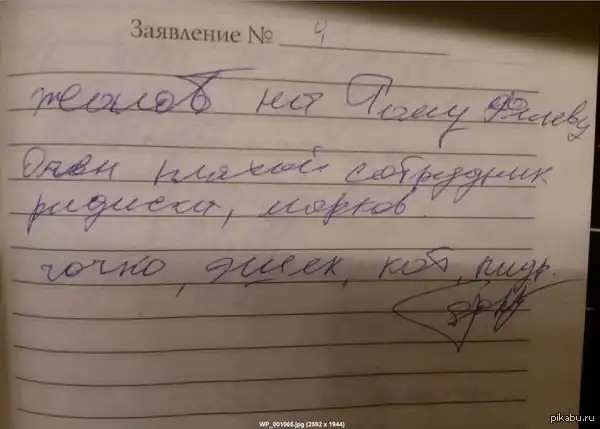 Заявление № 4
жалоб на Тому Филеву
Очен пляхой сотрудник
ридиска, морков.
точко, эшек, кот,
WP_001065.jpg (2592 x 1944)
pikabu.ru